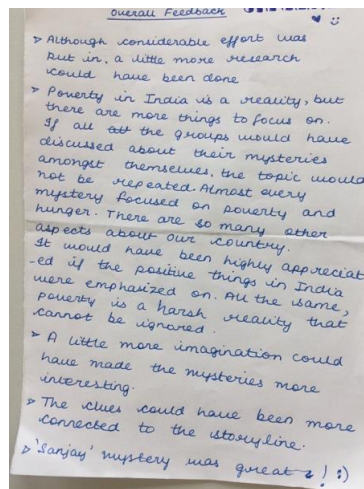 Overall Feedback
▷ Although considerable effort was
put in, a little more research
could have been done
▷ Poverty in India is a reality, but
there are more things to focus on.
If all the groups would have
discussed about their mysteries
amongst themselves, the topic would
not be repeated. Almost every
mystery focused on poverty and
hunger. There are so many other
aspects about our country.
It would have been highly appreciat
-ed if the positive things in India
were emphasized on. All the same,
poverty is a harsh reality that
cannot be ignored.
▷ A little more imagination could
have made the mysteries more
interesting.
▷ The clues could have been more
connected to the storyline.
▷ 'Sanjay' mystery was great! :)